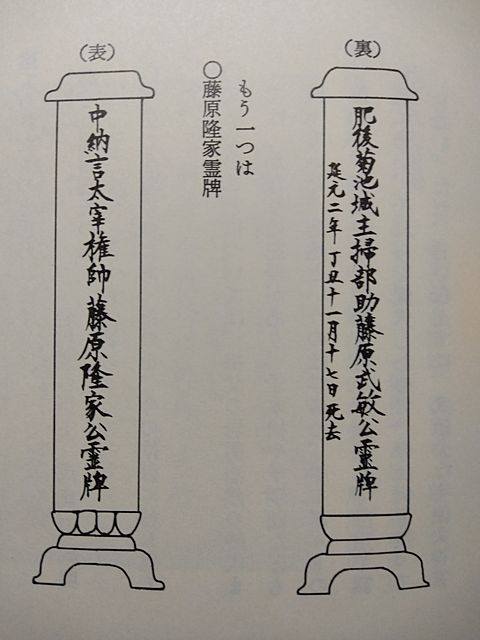 (裏)
肥後菊池城主掃部助藤原武敏公霊牌
延元二年丁丑十一月十七日死去
もう一つは
○藤原隆家霊牌
(表)
中納言太宰権帥藤原隆家公霊牌